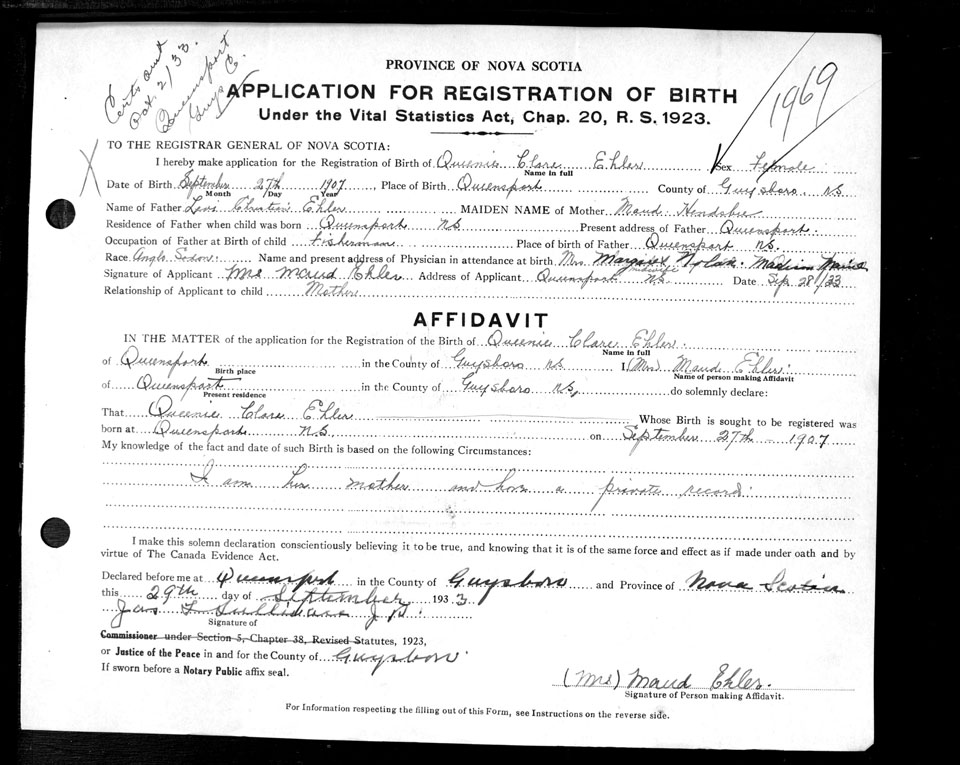 Certs out
Oct. 2/33.
Queensport
Guys Co.
1969
PROVINCE OF NOVA SCOTIA
APPLICATION FOR REGISTRATION OF BIRTH
Under the Vital Statistics Act, Chap. 20, R. S. 1923.
TO THE REGISTRAR GENERAL OF NOVA SCOTIA:
I hereby make application for the Registration of Birth of Queenie Clare Ehler Sex Female
Name in full
Date of Birth September 27th 1907, Place of Birth Queensport County of Guysboro NS
Month Day Year
Name of Father Levi Ehler MAIDEN NAME of Mother Maud Hendsbee
Residence of Father when child was born Queensport NS Present address of Father Queensport.
Occupation of Father at Birth of child Fisherman Place of birth of Father Queensport NS.
Race Anglo Saxon. Name and present address of Physician in attendance at birth Mrs. Margaret Nolan. Madison
midwife
Signature of Applicant Mrs Maud Ehler Address of Applicant Queensport NS. Date Sep 28/33
Relationship of Applicant to child Mother
AFFIDAVIT
IN THE MATTER of the application for the Registration of the Birth of Queenie Clare Ehler.
Name in full
of Queensport in the County of Guysboro NS I (Mrs) Maud Ehler
Birth place Name of person making Affidavit
of Queensport in the County of Guysboro NS, do solemnly declare:
Present residence
That Queenie Clare Ehler Whose Birth is sought to be registered was
born at Queensport N.S. on September 27th 1907
My knowledge of the fact and date of such Birth is based on the following Circumstances:
I am her mother and have a private record.
I make this solemn declaration conscientiously believing it to be true, and knowing that it is of the same force and effect as if made under oath and by
virtue of The Canada Evidence Act.
Declared before me at Queensport in the County of Guysboro and Province of Nova Scotia
this 29th day of September 1933
Jas Sullivan J.P.
Signature of
Commissioner under Section 5, Chapter 38, Revised Statutes, 1923,
or Justice of the Peace in and for the County of Guysboro
If sworn before a Notary Public affix seal.
(Mrs) Maud Ehler.
Signature of Person making Affidavit.
For Information respecting the filling out of this Form, see Instructions on the reverse side.